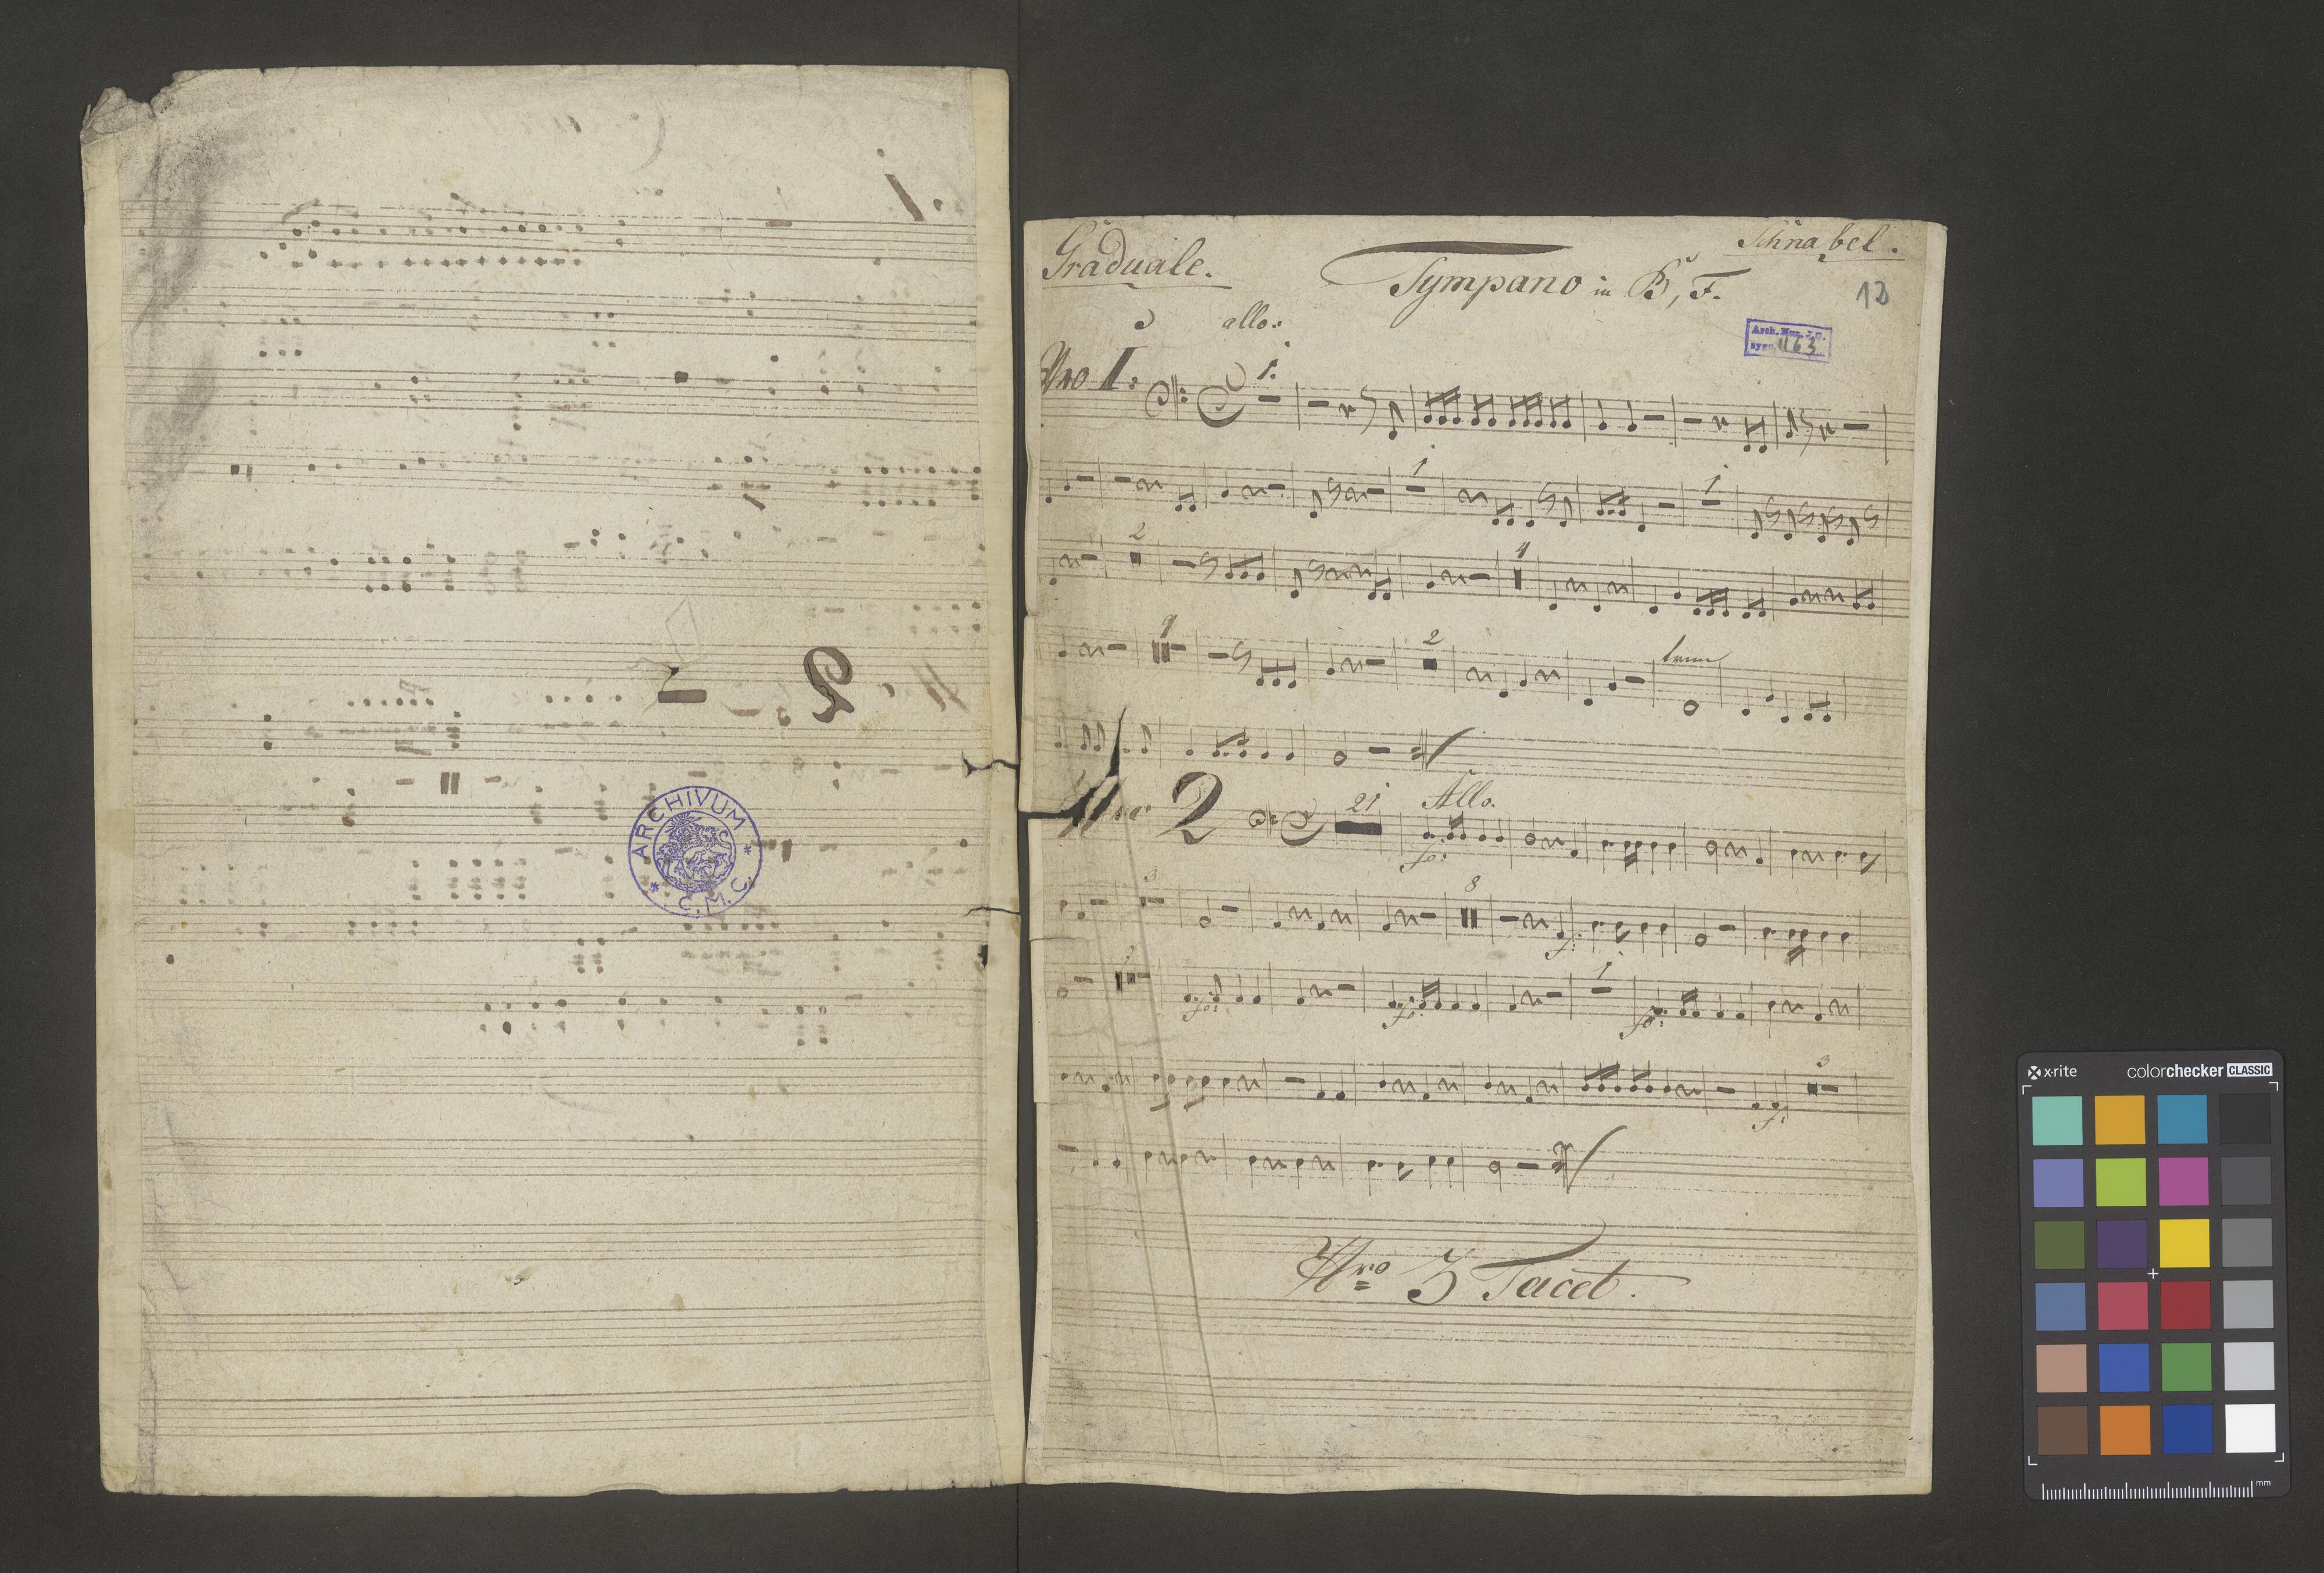 1.
ARCHIVUM
* C. M. C. *
Graduale.
Schnabel.
Tympano in B, F.
12
allo:
Arch. Muz. J. G.
sygn. 1163
Nro I:
1.
1
1
2
4
9
2
Nro 2
21
Allo.
fo:
3
8
f:
fo:
fo:
1
fo:
3
f:
Nro 3 Tacet.
x-rite
colorchecker CLASSIC
mm